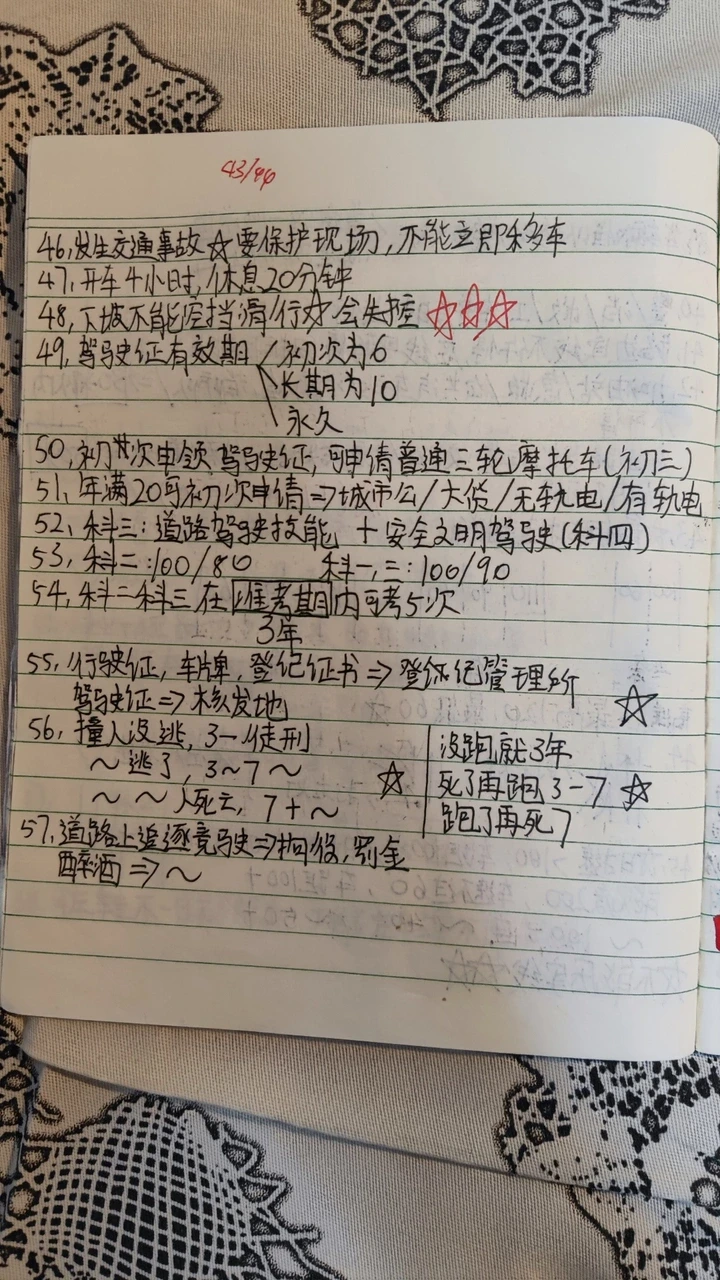 43/44
46,发生交通事故☆要保护现场,不能立即移车
47,开车4小时,休息20分钟
48,下坡不能空挡滑行☆会失控 ☆☆☆
49,驾驶证有效期/初次为6
\长期为10
\永久
50,初次申领驾驶证,可申请普通三轮摩托车(初三)
51,年满20可初次申请⇒城市公/大货/无轨电/有轨电
52,科三:道路驾驶技能 + 安全文明驾驶(科四)
53,科二:100/80 科一,三:100/90
54,科二科三在准考期内可考5次
3年
55,行驶证,车牌,登记证书⇒登记管理所
驾驶证⇒核发地 ☆
56,撞人没逃,3-徒刑
~逃了,3~7~ ☆
~~人死亡,7+~
没跑就3年
死了再跑3-7 ☆
跑了再死7
57,道路上追逐竞驶⇒拘役,罚金
醉酒⇒~